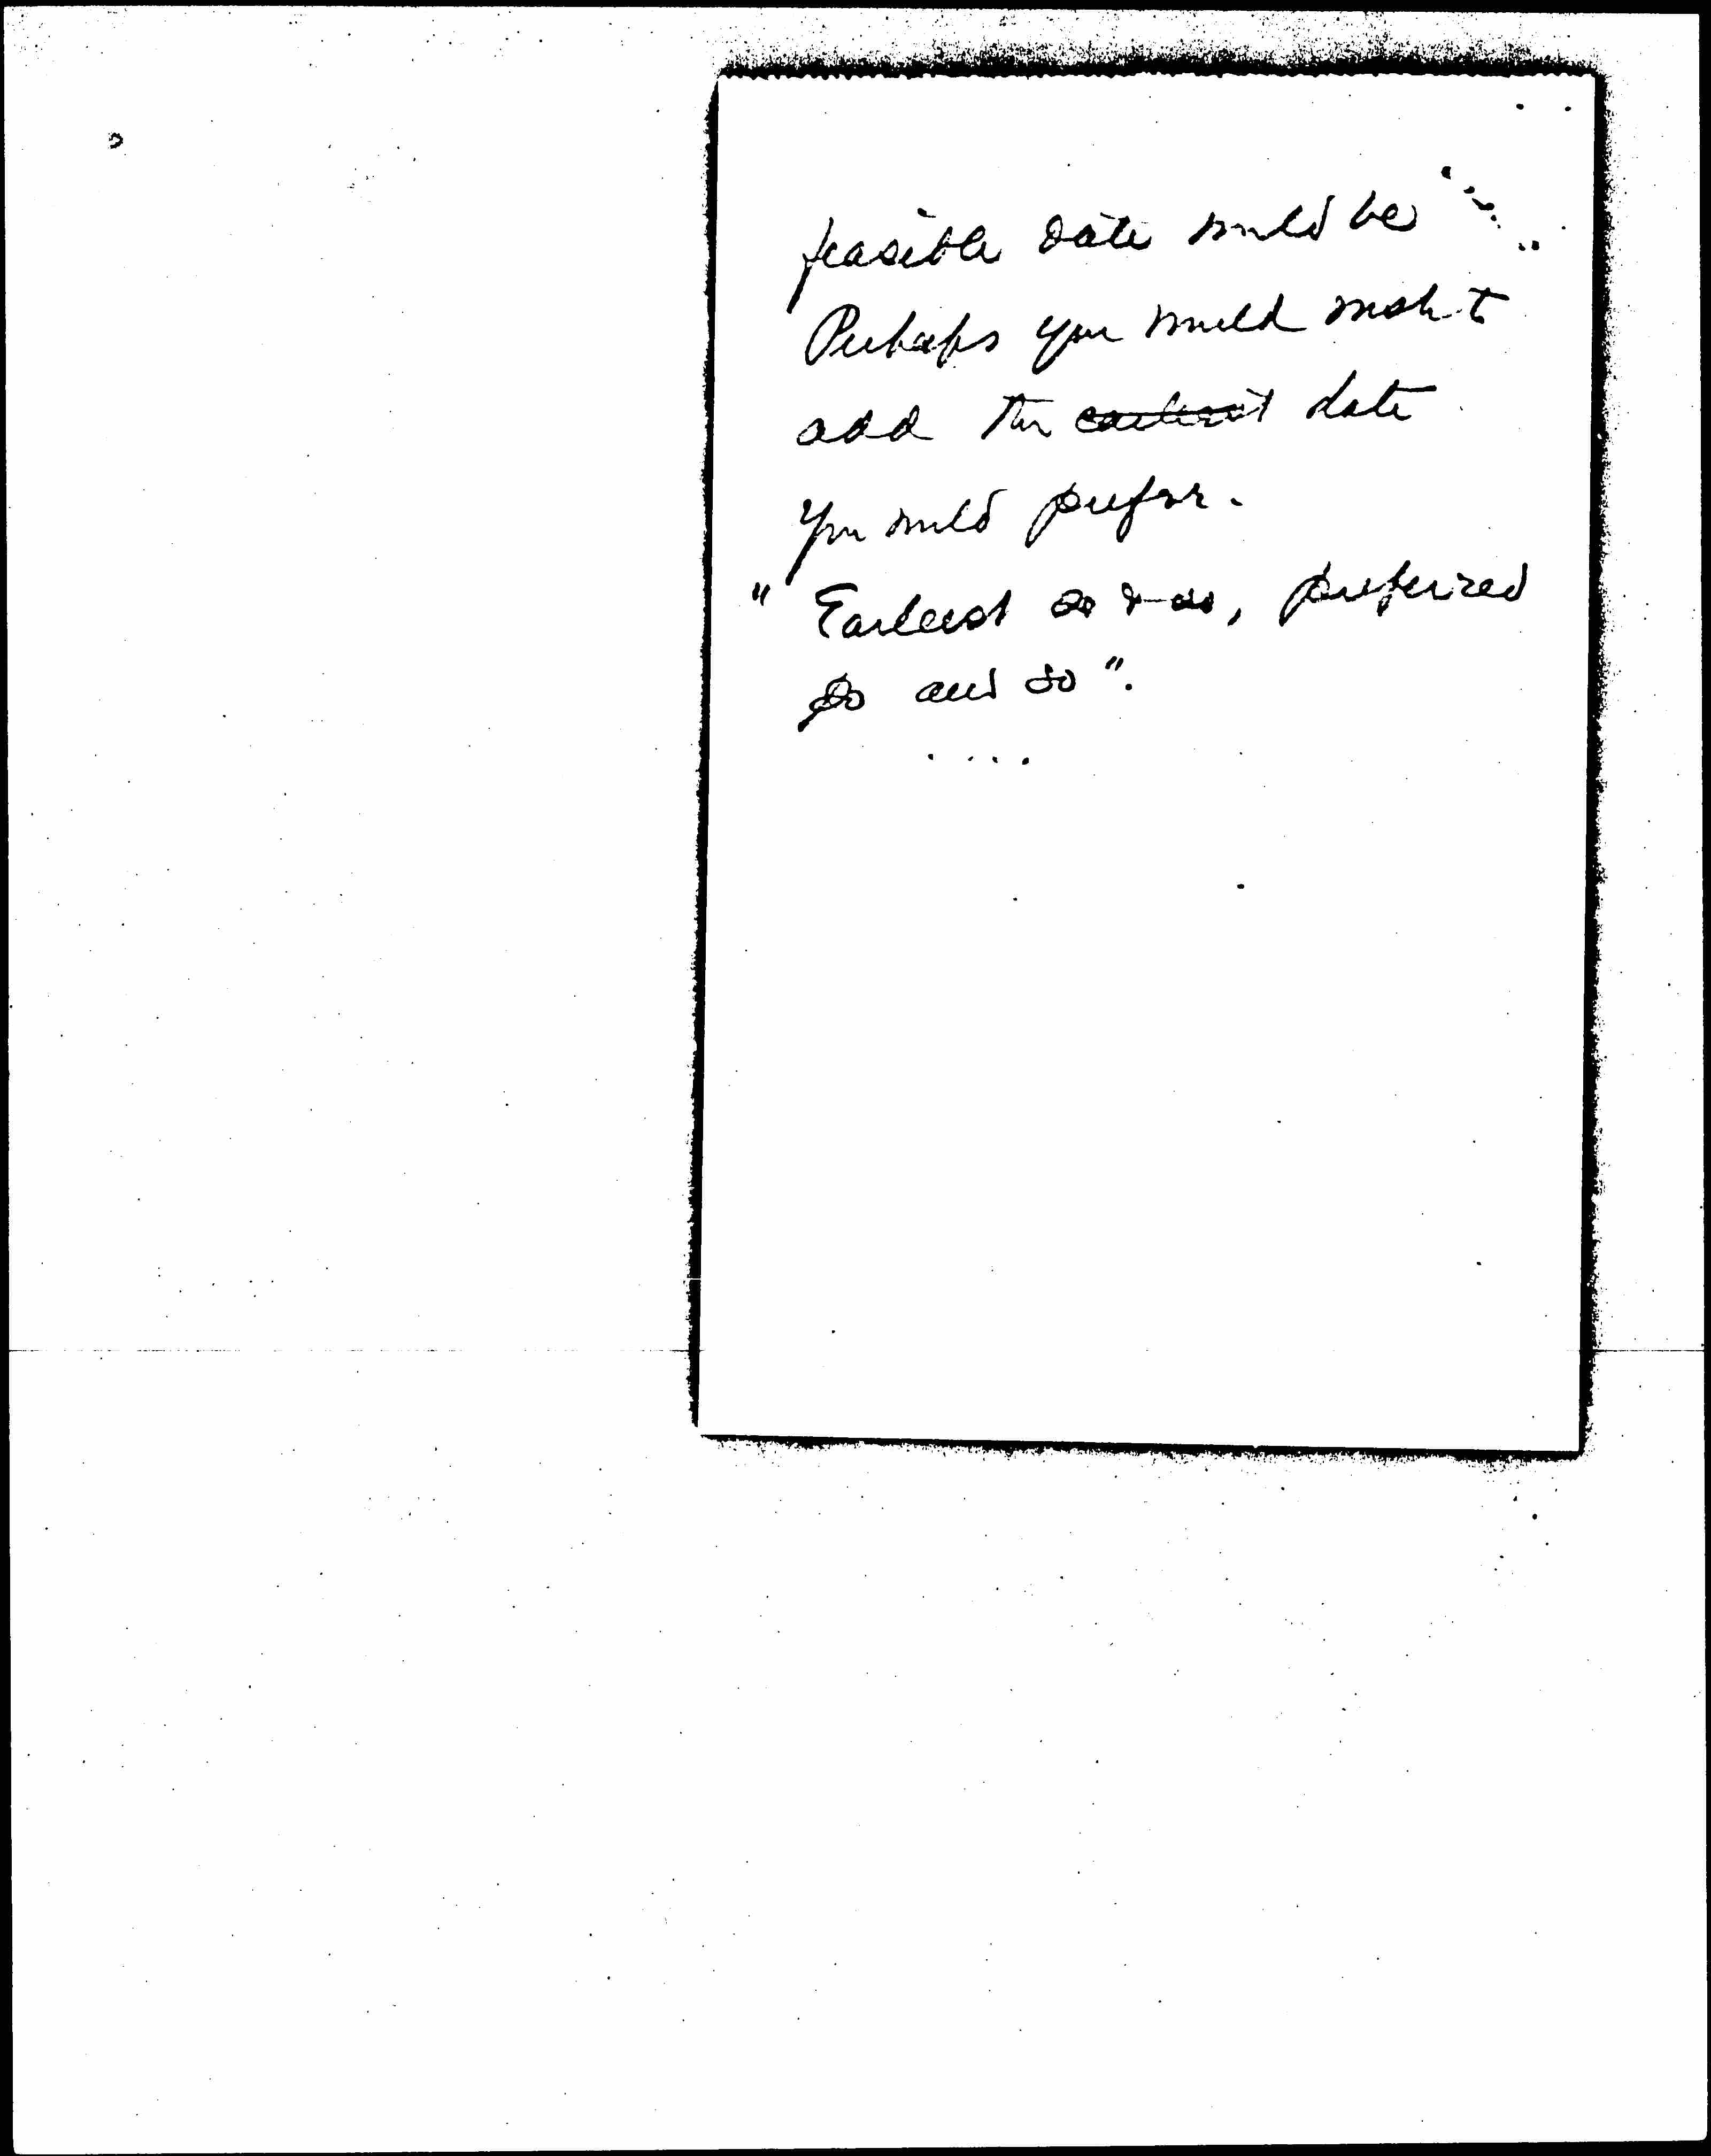 feasible date would be "...."
Perhaps you would wish to
add the earliest date
you would prefer.
" Earliest so & so, preferred
so and so ".
....